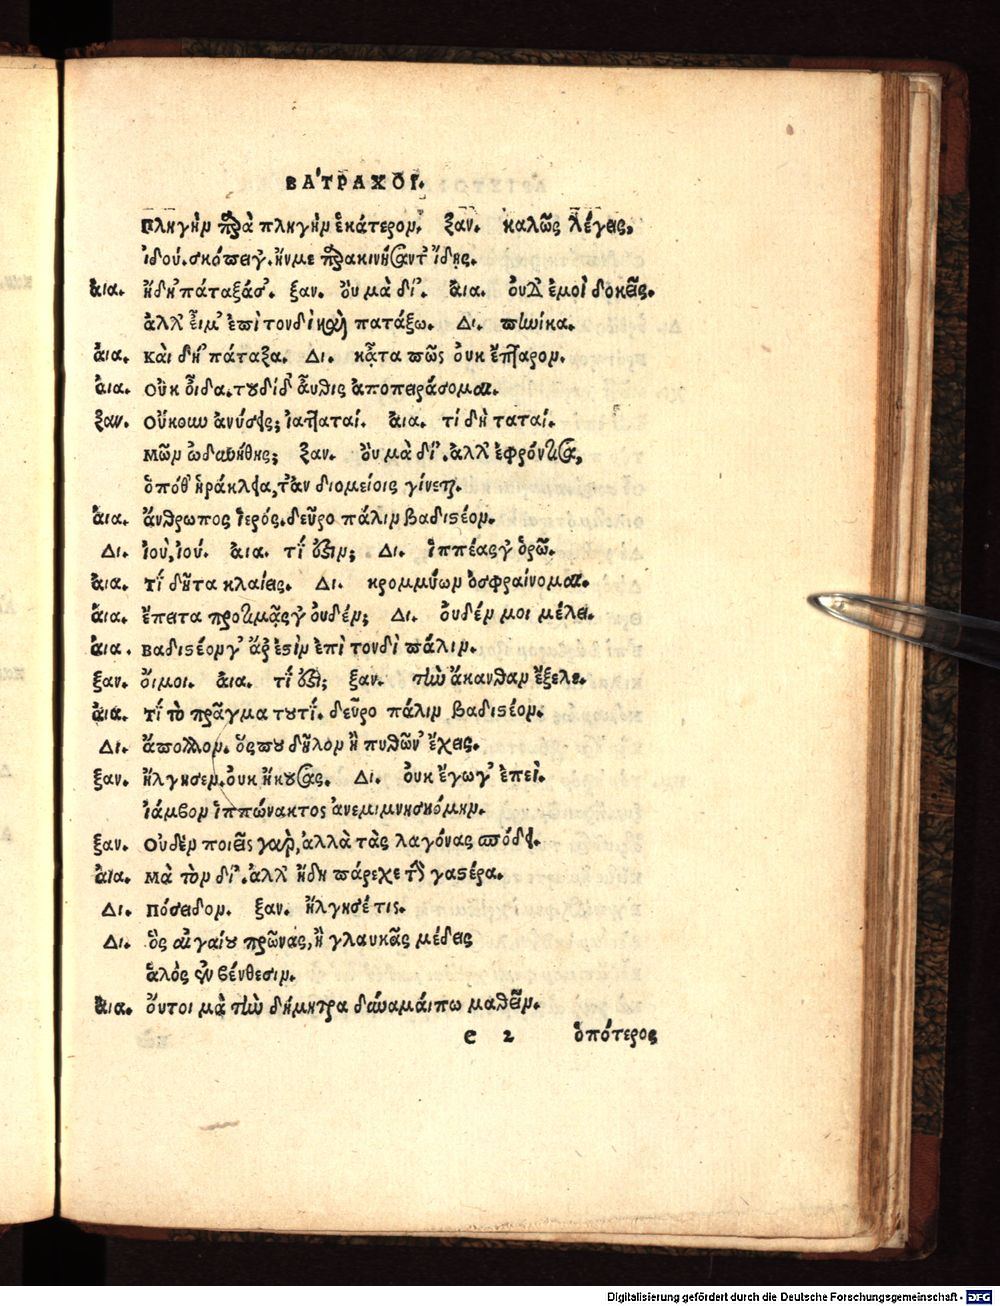 ΒΑ'ΤΡΑΧΟΙ.
πληγὴν παρὰ πληγὴν ἑκάτερον. ξαν. καλῶς λέγεις.
ἰδού. σκόπει γ'. ἤν με παρακινήσαντ' ἴδης.
ἀια. ἤδη 'πάταξάς'. ξαν. ὂυ μὰ δί'. ἀια. ὀυδ' ἐμοὶ δοκεῖς.
ἀλλ' εἶμ' ἐπὶ τονδὶ καὶ πατάξω. Δι. πηνίκα.
ἀια. καὶ δὴ 'πάταξα. Δι. κᾆτα πῶς ὀυκ ἔπταρον.
ἀια. ὀυκ ὄιδα. τουδὶ δ' ἆυθις ἀποπειράσομαι.
ξαν. ὀύκουν ἀνύσεις; ἰατταταί. ἀια. τί δὴ ταταί.
μῶν ὠδυνήθης; ξαν. ὂυ μὰ δί'. ἀλλ' ἐφρόντισα,
ὁπόθ' ἡράκλεια, τἀν διομείοις γίνεται.
ἀια. ἄνθρωπος ἱερός. δεῦρο πάλιν βαδιστέον.
Δι. ἰού, ἰού. ἀια. τί ἐστιν; Δι. ἱππέας γ' ὁρῶ.
ἀια. τί δῆτα κλαίεις. Δι. κρομμύων ὀσφραίνομαι.
ἀια. ἔπειτα προτιμᾷς γ' ὀυδέν; Δι. ὀυδέν μοι μέλει.
ἀια. βαδιστέον γ' ἄρ' ἐστὶν ἐπὶ τονδὶ πάλιν.
ξαν. ὄιμοι. ἀια. τί ἐστι; ξαν. τὴν ἄκανθαν ἔξελε.
ἀια. τί τὸ πρᾶγμα τουτί. δεῦρο πάλιν βαδιστέον.
Δι. ἄπολλον. ὅς που δῆλον ἢ πυθῶν' ἔχεις.
ξαν. ἤλγησεν. ὀυκ ἤκουσας. Δι. ὀυκ ἔγωγ' ἐπεὶ.
ἴαμβον ἱππώνακτος ἀνεμιμνησκόμην.
ξαν. ὀυδὲν ποιεῖς γὰρ, ἀλλὰ τὰς λαγόνας σπόδει.
ἀια. μὰ τὸν δί'. ἀλλ' ἤδη πάρεχε τὴν γαστέρα.
Δι. πόσειδον. ξαν. ἤλγησέ τις.
Δι. ὃς ἀιγαίου πρῶνας, ἢ γλαυκᾶς μέδεις
ἁλὸς ἐν βένθεσιν.
ἀια. ὄυτοι μὰ τὴν δήμητρα δύναμάι πω μαθεῖν.
e 2 ὁπότερος
Digitalisierung gefördert durch die Deutsche Forschungsgemeinschaft - DFG